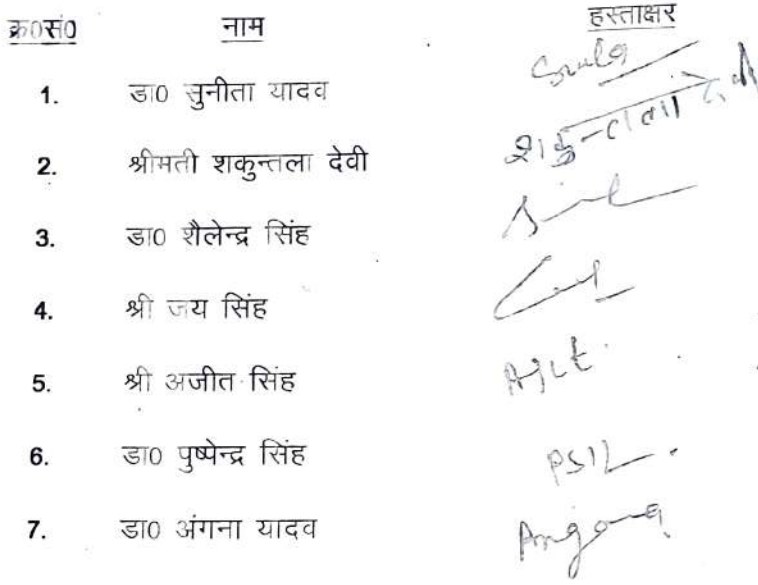 क्र0सं0 नाम हस्ताक्षर
1. डा0 सुनीता यादव
2. श्रीमती शकुन्तला देवी शकुन्तला देवी
3. डा0 शैलेन्द्र सिंह
4. श्री जय सिंह
5. श्री अजीत सिंह Ajit
6. डा0 पुष्पेन्द्र सिंह
7. डा0 अंगना यादव Angana